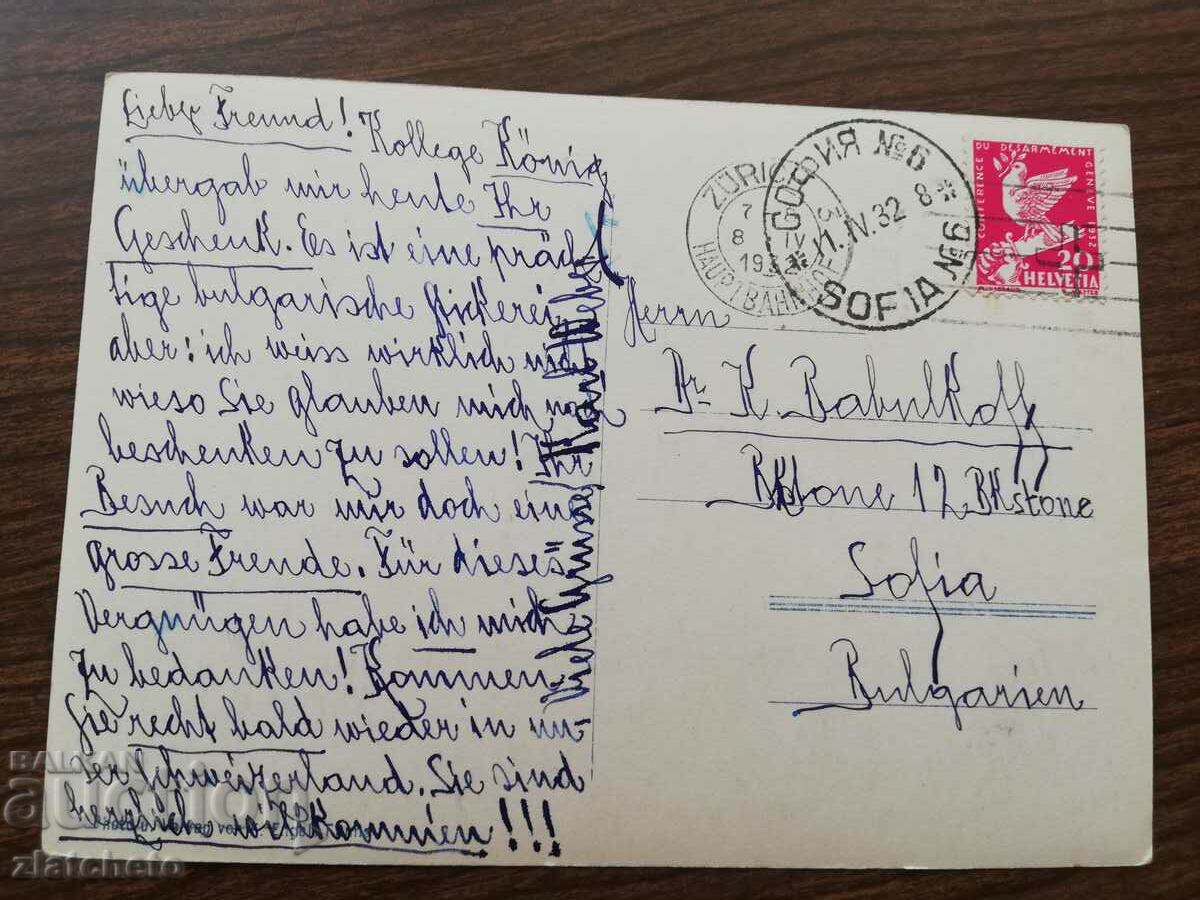 Lieber Freund! Kollege König
übergab mir heute Ihr
Geschenk. Es ist eine präch-
tige bulgarische Stickerei
aber: ich weiss wirklich nicht
wieso Sie glauben mich noch
beschenken zu sollen! Ihr
Besuch war mir doch eine
grosse Freude. Für dieses
Vergnügen habe ich mich
zu bedanken! Kommen
Sie recht bald wieder in un-
ser Schweizerland. Sie sind
herzlich willkommen!!!
Viele Grüsse Karl
ZÜRICH
7
8 IV
1932
HAUPTBAHNHOF
СОФИЯ №6
11.IV.32 8
SOFIA №6
CONFERENCE DU DESARMEMENT GENÈVE 1932
20
HELVETIA
Herrn
Dr. K. Babulkoff
12
Sofia
Bulgarien
BALKAN
auction
zlatcheto